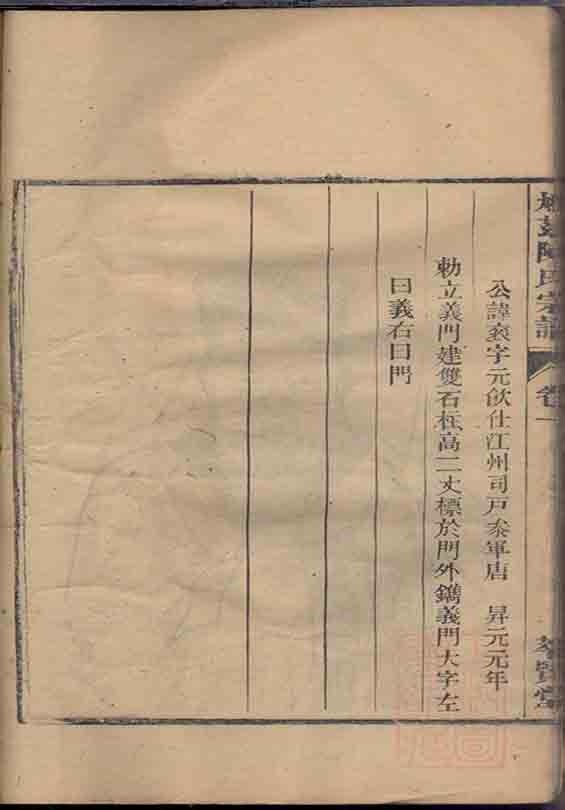 陳氏宗譜 卷一
公諱袞字元欽仕江州司戶叅軍唐 昇元元年
勅立義門建雙石柱高二丈標於門外鐫義門大字左
曰義右曰門